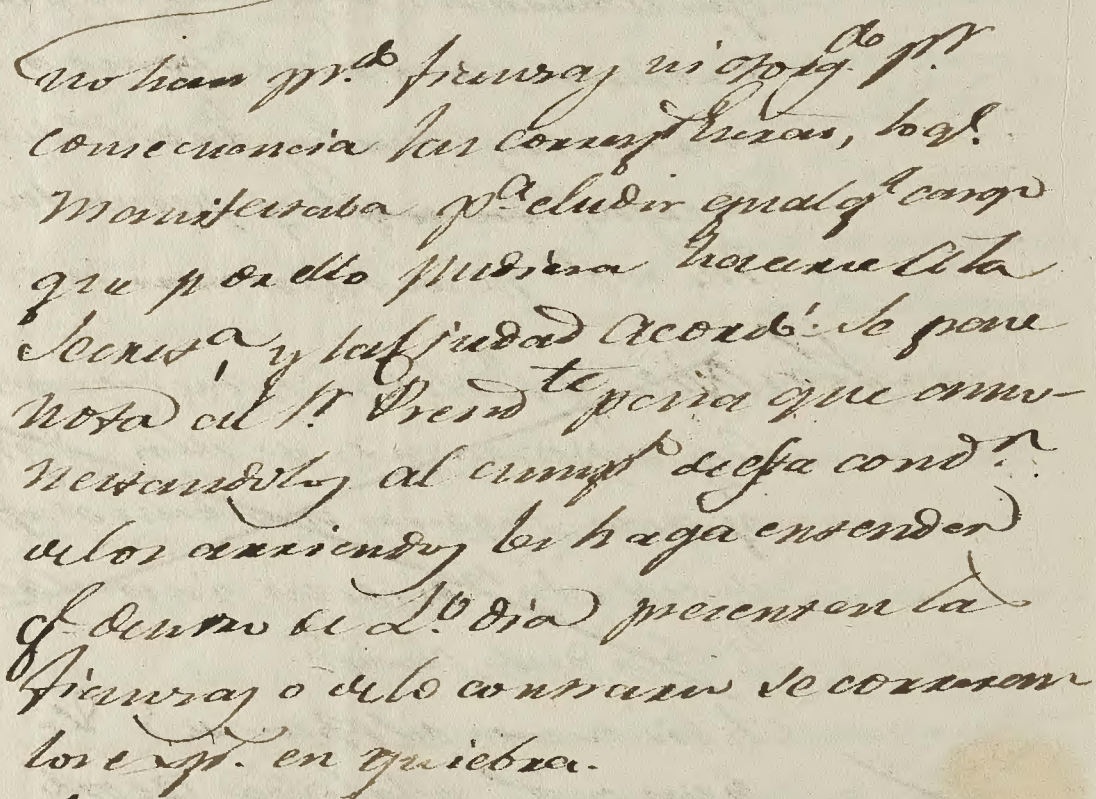 no han pr.do fianzas ni otorg.do p.r
consecuencia las corresp.t Escras, lo q.e
manifestaba p.a eludir qualq.a cargo
que p.r ello pudiera hacerse a la
Secret.a, y la Ciudad acordó: Se pase
nota al S.r Presid.te para que amo-
nestandolos al cump.to de esta cond.n
de los arriendos les haga entender
q.e dentro de 2.o dia presenten la
fianzas o de lo contrario se correran
los exp.s en quiebra.